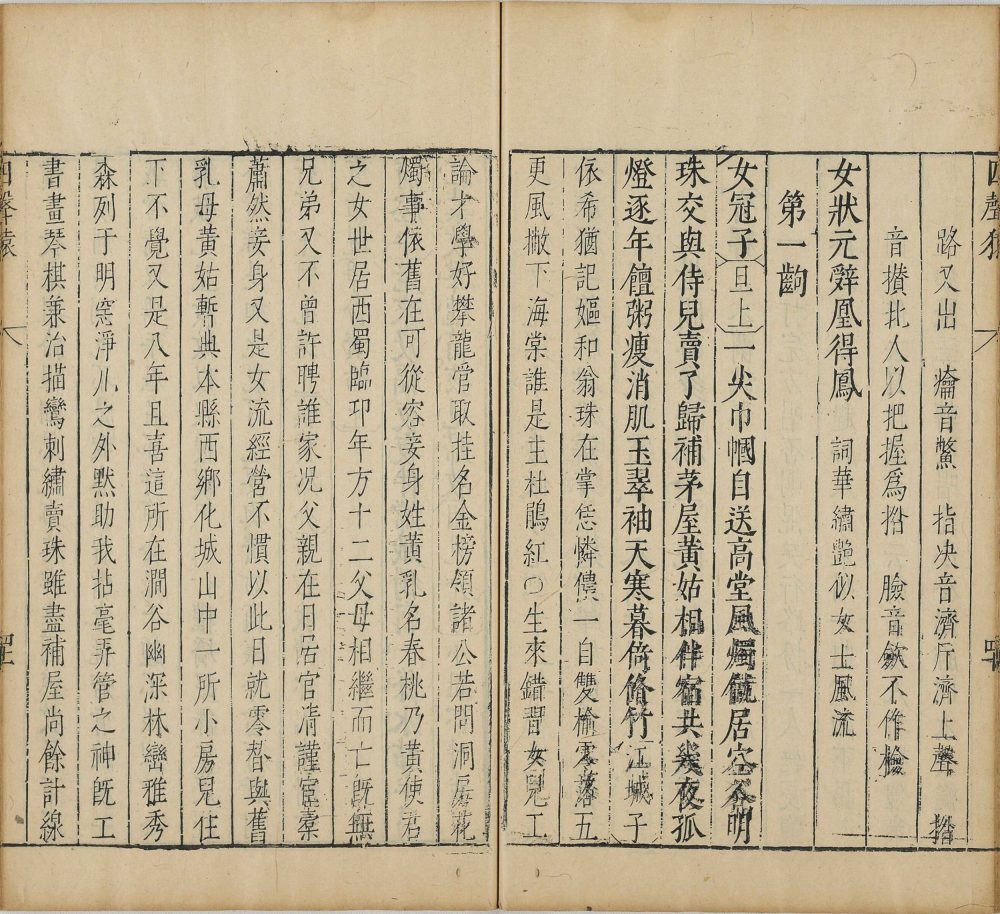 四聲猿
路又出 癟音鱉 指决音濟斤濟上聲 撘
音攢北人以把握爲撘 臉音歛不作檢
女狀元辭凰得鳳 詞華繡艷似女士風流
第一齣
女冠子旦上一尖巾幗自送高堂風燭僦居空谷明
珠交與侍兒賣了歸補茅屋黃姑相伴宿共幾夜孤
燈逐年饘粥瘦消肌玉翠袖天寒暮倚脩竹江城子
依希猶記嫗和翁珠在掌恁憐儂一自雙榆零落五
更風撇下海棠誰是主杜鵑紅○生來錯習女兒工
論才學好攀龍管取挂名金榜領諸公若問洞房花
燭事依舊在可從容妾身姓黃乳名春桃乃黃使君
之女世居西蜀臨卭年方十二父母相繼而亡旣無
兄弟又不曾許聘誰家況父親在日居官清謹宦橐
蕭然妾身又是女流經營不慣以此日就零替與舊
乳母黃姑暫典本縣西鄉化城山中一所小房兒住
下不覺又是八年且喜這所在澗谷幽深林巒雅秀
森列于明窓淨几之外默助我拈毫弄管之神旣工
書畫琴棋兼治描鸞刺繡賣珠雖盡補屋尚餘計線
四聲猿